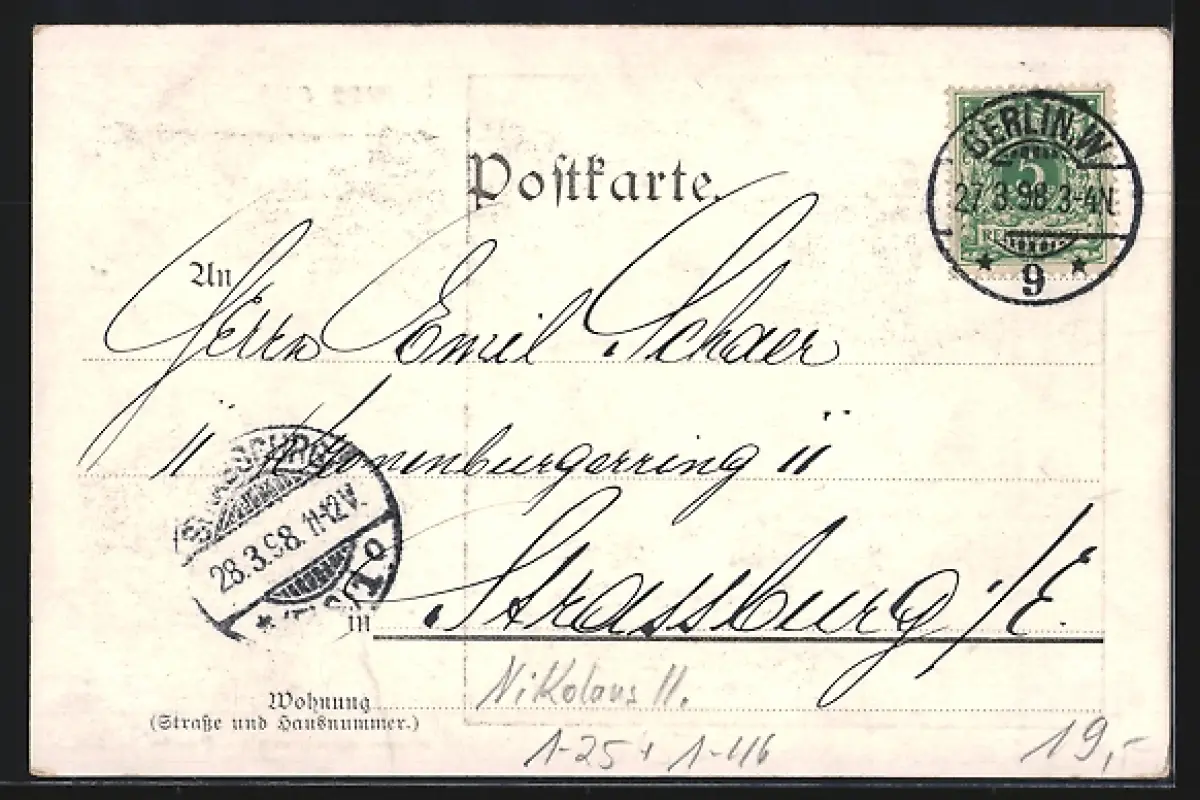 Postkarte.
BERLIN.W
5
27.3.98.3-4N.
REICHSPOST
* 9 *
An
Herrn Emil Schaer
11 Kronenburgerring 11
STRASSBURG
28.3.98. 11-12V.
* (ELS.) 1. o
in Strassburg i/E.
Wohnung
(Straße und Hausnummer.)
Nikolaus II.
1-25 + 1-116
19,-